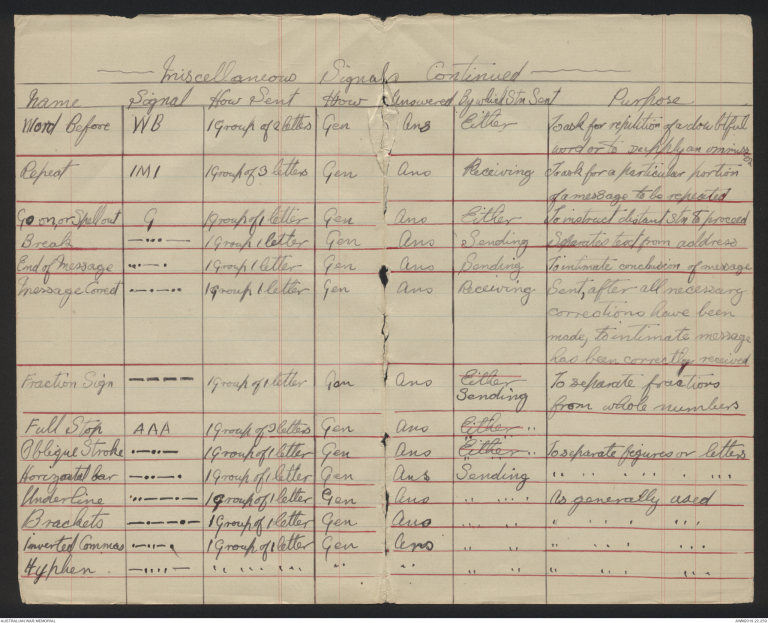 Miscellaneous Signals Continued
Name Signal How Sent How Answered By which Stn Sent Purpose
Word Before WB 1 Group of 2 letters Gen Ans Either To ask for repitition of a doubtful
word or to supply an ommission
Repeat IMI 1 Group of 3 letters Gen Ans Receiving To ask for a particular portion
of a message to be repeated
Go on, or Spell out G 1 Group of 1 letter Gen Ans Either To instruct distant Stn to proceed
Break —···— 1 Group 1 letter Gen Ans Sending Separates text from address
End of Message ··—· 1 Group 1 letter Gen Ans Sending To intimate conclusion of message
Message Correct —·—·· 1 Group 1 letter Gen Ans Receiving Sent, after all necessary
corrections have been
made, to intimate message
has been correctly received
Fraction Sign ———— 1 Group of 1 letter Gen Ans Either To separate fractions
Sending from whole numbers
Full Stop AAA 1 Group of 3 letters Gen Ans Either ··
Oblique Stroke —··—· 1 Group of 1 letter Gen Ans Either To separate figures or letters
Horizontal bar 1 Group of 1 letter Gen Ans Sending " " " " "
Underline 1 Group of 1 letter Gen Ans " " As generally used
Brackets —·——·— 1 Group of 1 letter Gen Ans " " " " "
Inverted Commas 1 Group of 1 letter Gen Ans " " " " "
Hyphen —····— " " " " " " " " " " "
AUSTRALIAN WAR MEMORIAL